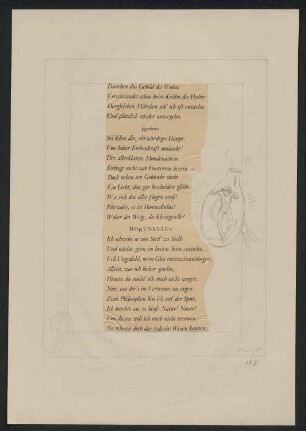 Daneben das Gebild des Wahns
Verschwindet schon beim Krähn des Hahns
Dergleichen Märchen seh' ich oft entstehn
Und plötzlich wieder untergehn.
Sei Ehre dir, ehrwürdiges Haupt,
Von hoher Eichenkraft umlaubt!
Der allerklarste Mondenschein
Dringt nicht zur Finsternis herein.
Doch neben am Gebüsche zieht
Ein Licht, das gar bescheiden glüht.
Wie sich das alles fügen muß!
Fürwahr, es ist Homunculus!
Woher des Wegs, du Kleingeselle?
HOMUNCULUS
Ich schwebe so von Stell' zu Stelle
Und möchte gern im besten Sinn entstehn,
Voll Ungeduld, mein Glas entzweizuschlagen;
Allein, was ich bisher gesehn,
Hinein da möcht' ich mich nicht wagen.
Nur, um dir's im Vertraun zu sagen:
Zwei Philosophen bin ich auf der Spur,
Ich horchte zu, es hieß: Natur! Natur!
Von diesen will ich mich nicht trennen,
Sie müssen doch das irdische Wesen kennen;